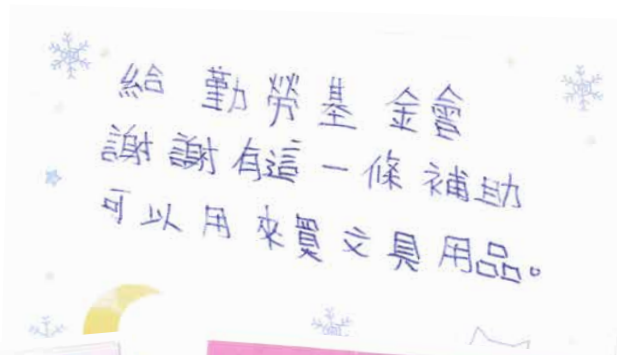 給勤勞基金會
謝謝有這一條補助
可以用來買文具用品。